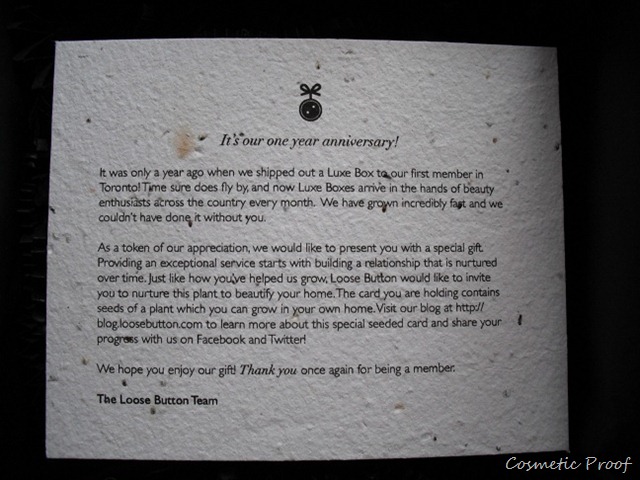 It's our one year anniversary!
It was only a year ago when we shipped out a Luxe Box to our first member in
Toronto! Time sure does fly by, and now Luxe Boxes arrive in the hands of beauty
enthusiasts across the country every month. We have grown incredibly fast and we
couldn't have done it without you.
As a token of our appreciation, we would like to present you with a special gift.
Providing an exceptional service starts with building a relationship that is nurtured
over time. Just like how you've helped us grow, Loose Button would like to invite
you to nurture this plant to beautify your home. The card you are holding contains
seeds of a plant which you can grow in your own home. Visit our blog at http://
blog.loosebutton.com to learn more about this special seeded card and share your
progress with us on Facebook and Twitter!
We hope you enjoy our gift! Thank you once again for being a member.
The Loose Button Team
Cosmetic Proof